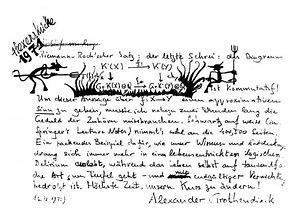 Hexenküche
1971
Riemann-Roch'scher Satz: der letzte Schrei: das Diagramm
K(X) → K(Y)
ist kommutatif!
Um dieser Aussage über f: X → Y einen approximativen
Sinn zu geben, musste ich nahezu zwei Stunden lang die
Geduld der Zuhörer missbrauchen. Schwarz auf weiss (in
Springer's Lecture Notes) nimmt's wohl an die 400, 500 Seiten.
Ein packendes Beispiel dafür, wie unser Wissens- und Entdeckungs-
drang sich immer mehr in einem lebensentrückten logischen
Delirium auslebt, während das Leben selbst auf tausendfache
Art zum Teufel geht - und mit endgültiger Vernichtung
bedroht ist. Höchste Zeit, unsern Kurs zu ändern!
Alexander Grothendieck